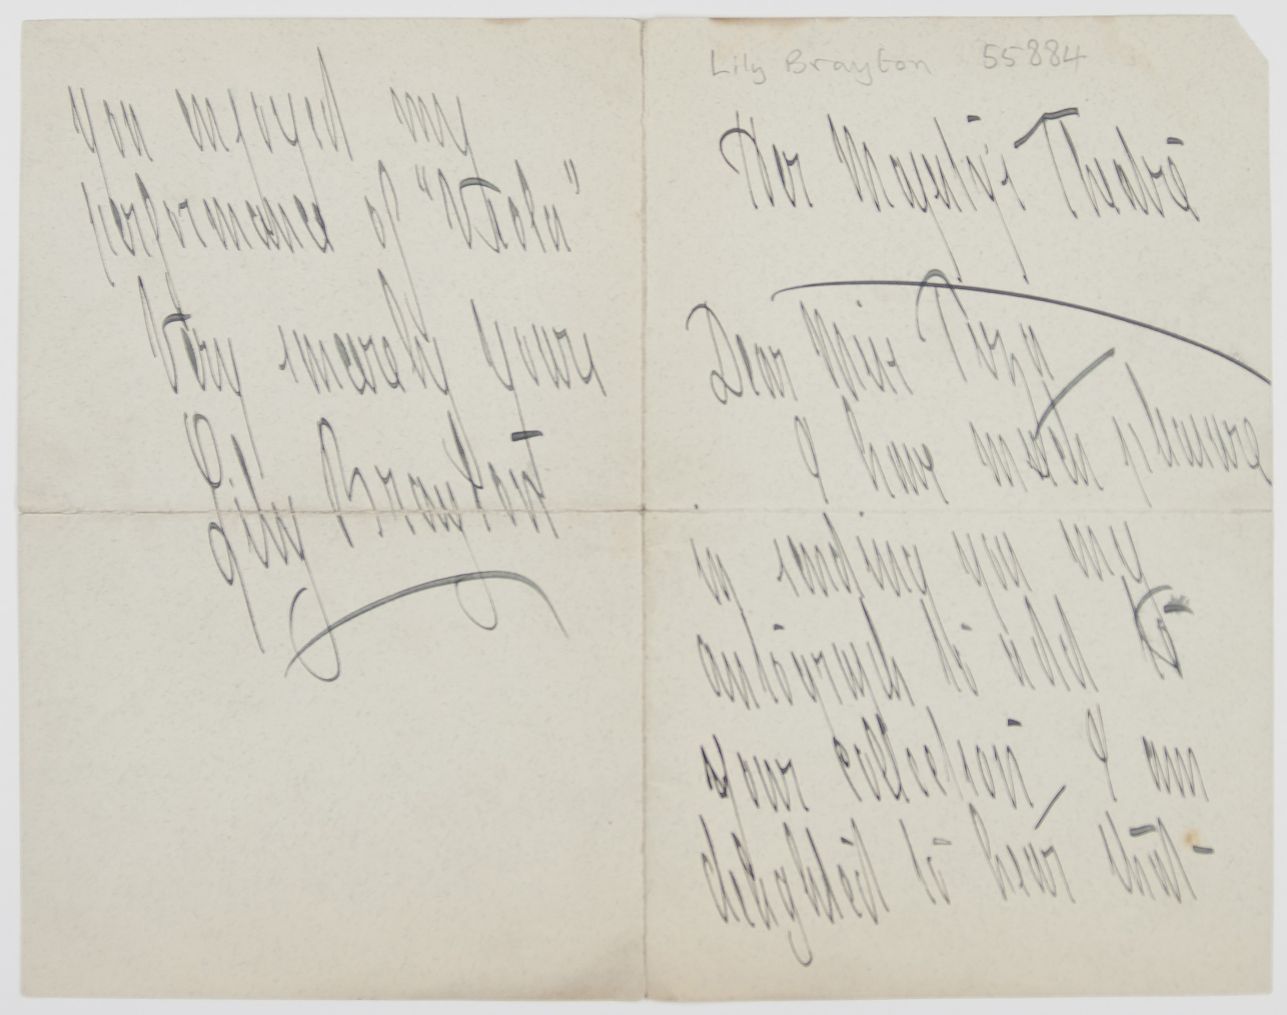 Lily Brayton 55884
Her Majesty's Theatre
Dear Miss
I have much pleasure
in sending you my
autograph to add to
your collection I am
delighted to hear that
you enjoyed my
performance of "Viola"
Very sincerely yours
Lily Brayton